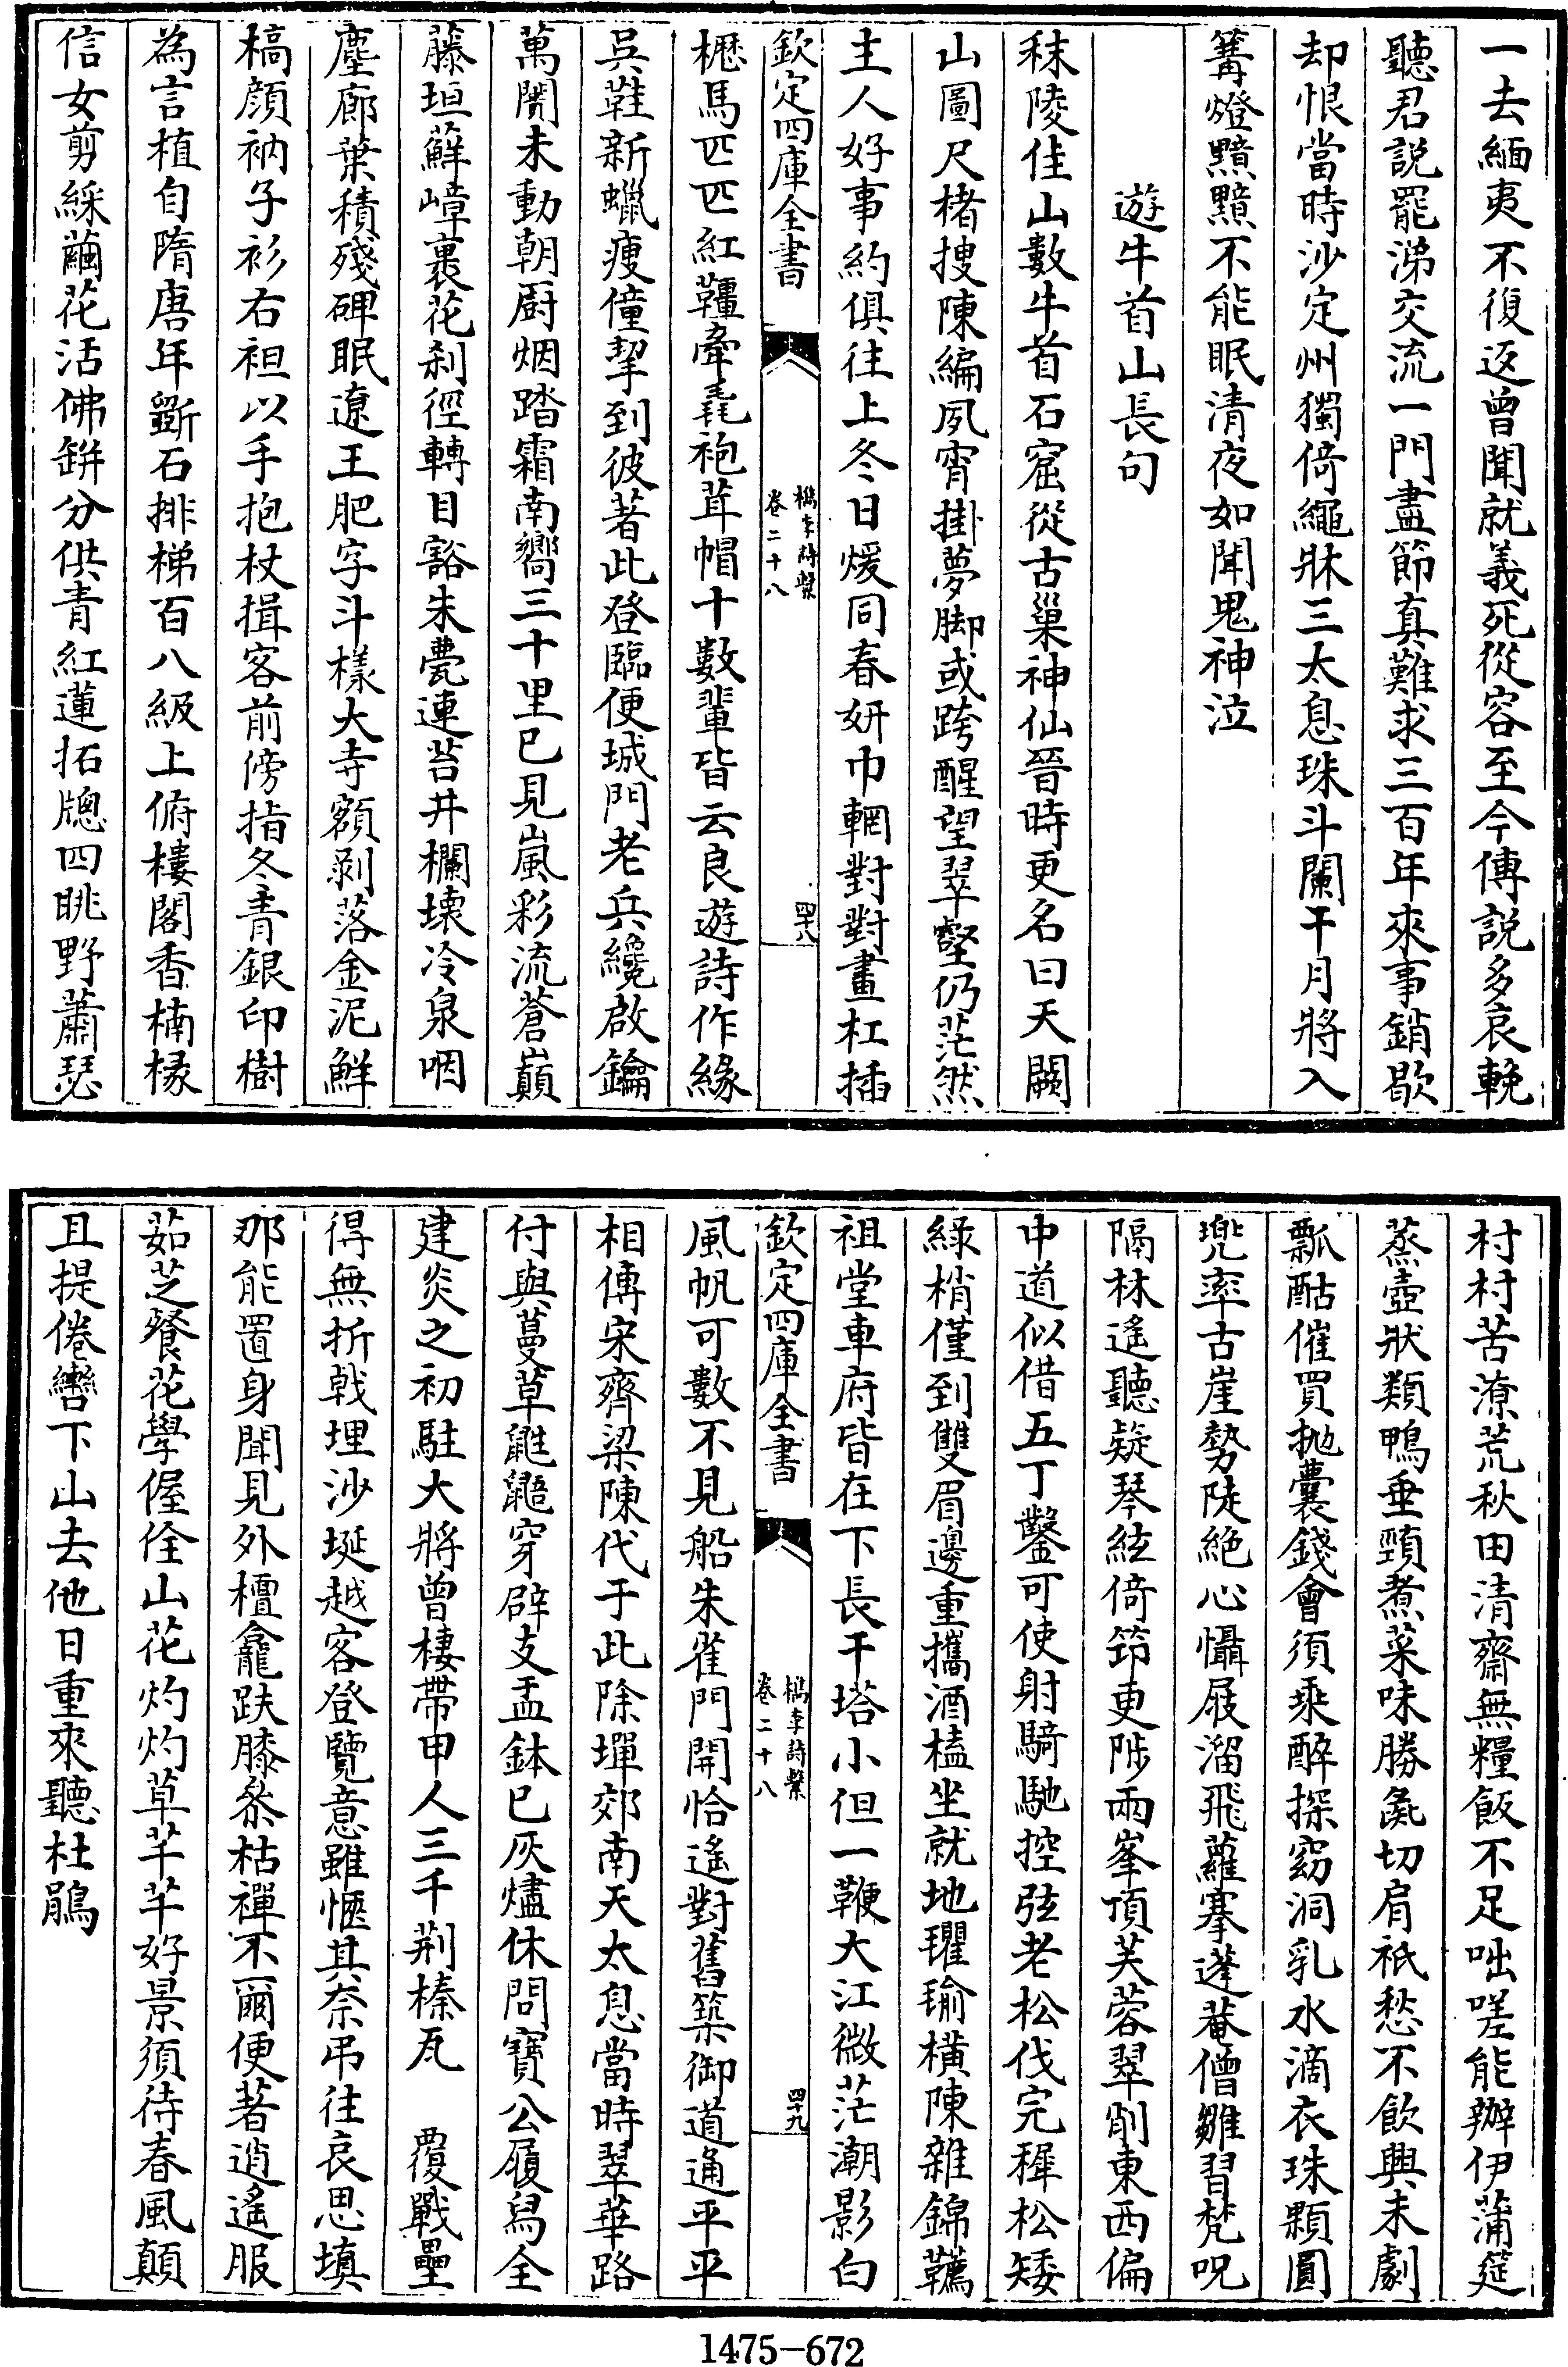 一去緬夷不復返曾聞就義死從容至今傳説多哀輓
聽君説罷涕交流一門盡節真難求三百年來事銷歇
却恨當時沙定州獨倚繩牀三太息珠斗闌干月將入
篝燈黯黯不能眠清夜如聞鬼神泣
遊牛首山長句
秣陵佳山數牛首石窟從古巢神仙晉時更名曰天闕
山圖尺楮搜陳編夙宵掛夢脚或跨醒望翠壑仍茫然
主人好事約俱往上冬日煖同春妍巾輞對對畫杠插
欽定四庫全書
檇李詩繫
卷二十八
四十八
櫪馬匹匹紅韁牽毳袍茸帽十數輩皆云良遊詩作緣
吳鞋新蠟瘦僮挈到彼著此登臨便城門老兵纔啟鑰
萬閧未動朝厨烟踏霜南嚮三十里已見嵐彩流蒼巔
藤垣蘚嶂裹花刹徑轉目豁朱甍連苔井欄壊冷泉咽
塵廊葉積殘碑眠遼王肥字斗様大寺額剥落金泥鮮
槁顔衲子衫右袒以手抱杖揖客前傍指冬青銀印樹
為言植自隋唐年斲石排梯百八級上俯樓閣香楠椽
信女剪綵繭花活佛缾分供青紅蓮拓牕四眺野蕭瑟
村村苦潦荒秋田清齋無糧飯不足咄嗟能辦伊蒲筵
蒸壺狀類鴨垂頸煮菜味勝彘切肩祇愁不飲興未劇
瓢酤催買抛囊錢會須乘醉探窈洞乳水滴衣珠顆圓
兜率古崖勢陡絶心懾屐溜飛蘿搴蓬菴僧雛習梵呪
隔林遙聽疑琴絃倚笻更陟兩峯頂芙蓉翠削東西偏
中道似借五丁鑿可使射騎馳控弦老松伐完稺松矮
綠梢僅到雙眉邊重攜酒榼坐就地瓘瑜横陳雜錦韉
祖堂車府皆在下長干塔小但一鞭大江微茫潮影白
欽定四庫全書
檇李詩繫
卷二十八
四十九
風帆可數不見船朱雀門開恰遙對舊築御道通平平
相傳宋齊梁陳代于此除墠郊南天太息當時翠華路
付與蔓草鼪鼯穿辟支盂鉢已灰燼休問寶公履舄全
建炎之初駐大將曾棲帶甲人三千荆榛瓦　覆戰壘
得無折戟埋沙埏越客登覽意雖愜其奈弔往哀思填
那能置身聞見外檀龕趺膝叅枯禪不爾便著逍遙服
茹芝餐花學偓佺山花灼灼草芊芊好景須待春風顛
且提倦轡下山去他日重來聽杜鵑
1475-672